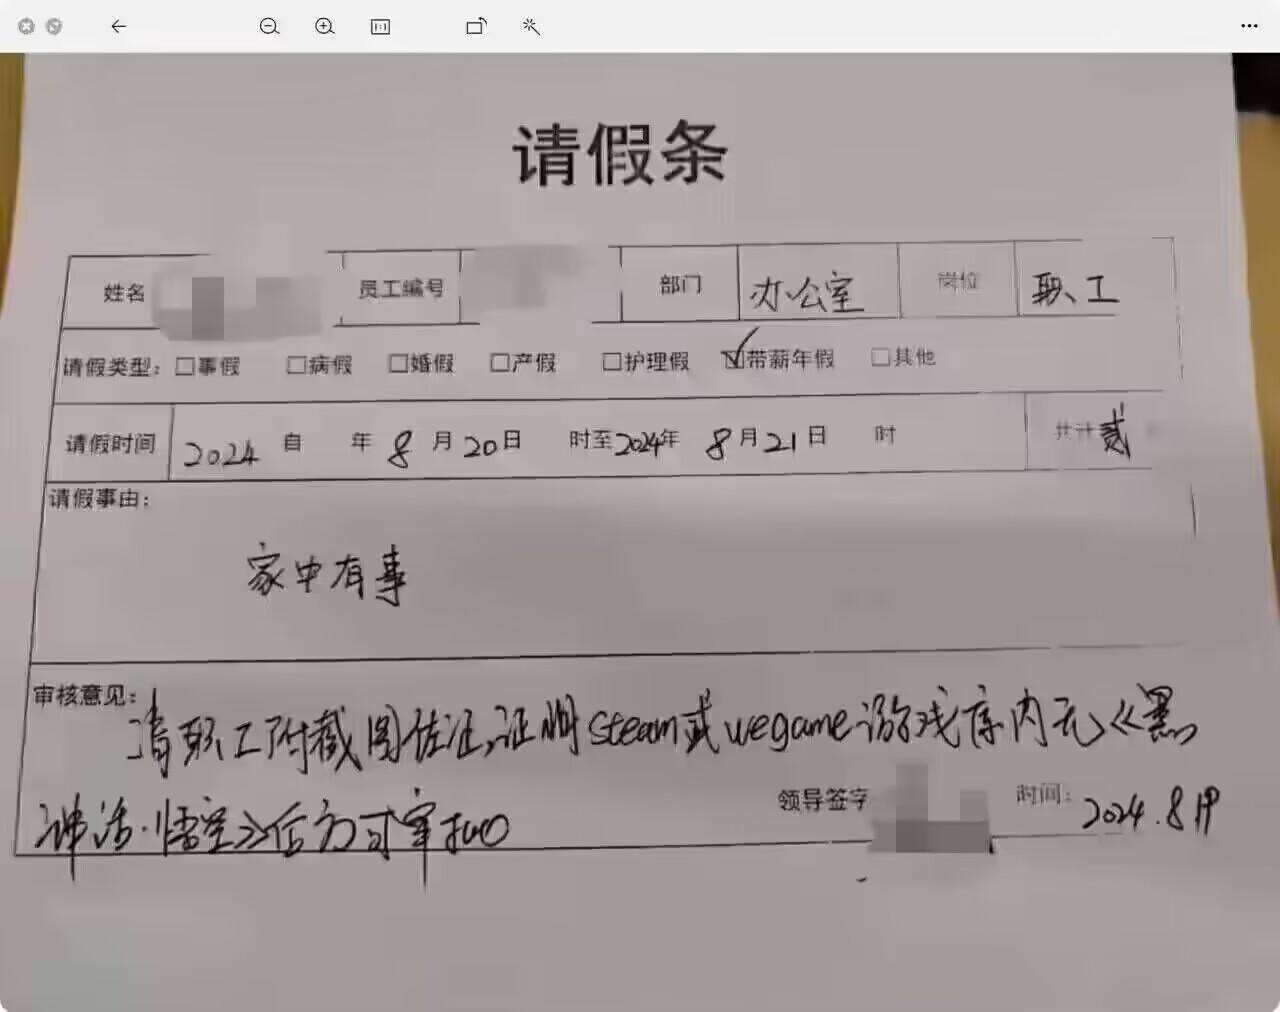 请假条
姓名 员工编号 部门 办公室 岗位 职工
请假类型：□事假 □病假 □婚假 □产假 □护理假 ☑带薪年假 □其他
请假时间 2024 自 年 8 月 20 日 时至 2024 年 8 月 21 日 时 共计 贰
请假事由：
家中有事
审核意见：
请职工附截图佐证，证明steam或wegame游戏库内无《黑
神话·悟空》后方可审批
领导签字 时间： 2024.8.19